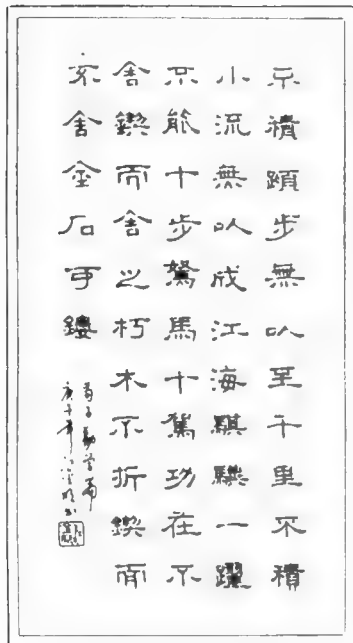 不積蹞步無以至千里不積
小流無以成江海騏驥一躍
不能十步駑馬十駕功在不
舍鍥而舍之朽木不折鍥而
不舍金石可鏤
荀子勸學篇
庚午年